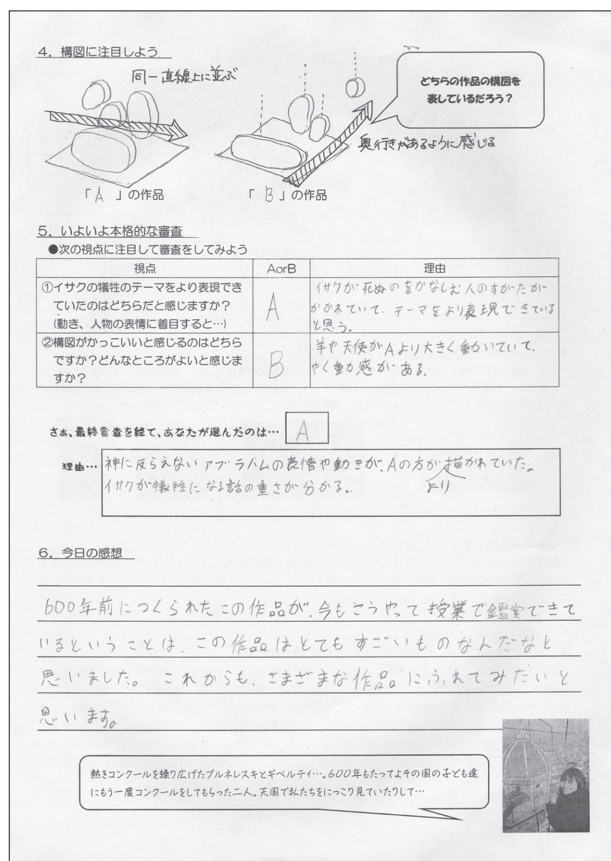 4．構図に注目しよう
同一直線上に並ぶ
どちらの作品の構図を
表しているだろう？
奥行きがあるように感じる
「A」の作品
「B」の作品
5．いよいよ本格的な審査
●次の視点に注目して審査をしてみよう
視点 AorB 理由
①イサクの犠牲のテーマをより表現でき
ていたのはどちらだと感じますか？
(動き、人物の表情に着目すると…)
A
イサクが死ぬのをかなしむ人のすがたが
かかれていて、テーマをより表現できている
と思う。
②構図がかっこいいと感じるのはどちら
ですか？どんなところがよいと感じま
すか？
B
羊や天使がAより大きく動いていて、
やく動感がある。
さぁ、最終審査を経て、あなたが選んだのは… A
理由…
神に反らえないアブラハムの表情や動きが、Aの方が描かれていた。
より
イサクが犠牲になる話の重さが分かる。
6．今日の感想
600年前につくられたこの作品が、今もこうやって授業で鑑賞できて
いるということは、この作品はとてもすごいものなんだなと
思いました。これからも、さまざまな作品にふれてみたいと
思います。
熱きコンクールを繰り広げたブルネレスキとギベルティ…。600年もたってよその国の子ども達
にもう一度コンクールをしてもらった二人。天国で私たちをにっこり見ていたりして…